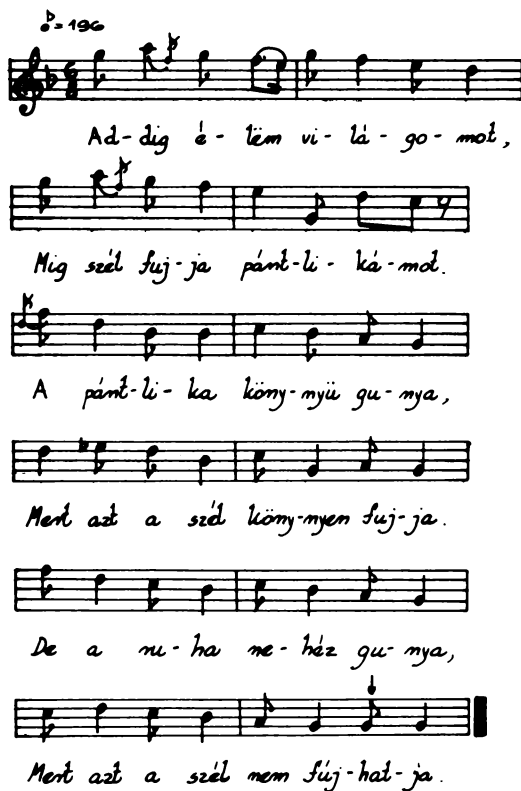 ♪= 196
6
8
Ad-dig é-lëm vi-lá-go-mot,
Mig szél fuj-ja pánt-li-ká-mot.
A pánt-li-ka köny-nyü gu-nya,
Mert azt a szél köny-nyen fuj-ja.
De a ru-ha ne-ház gu-nya,
Mert azt a szél nem fúj-hat-ja.